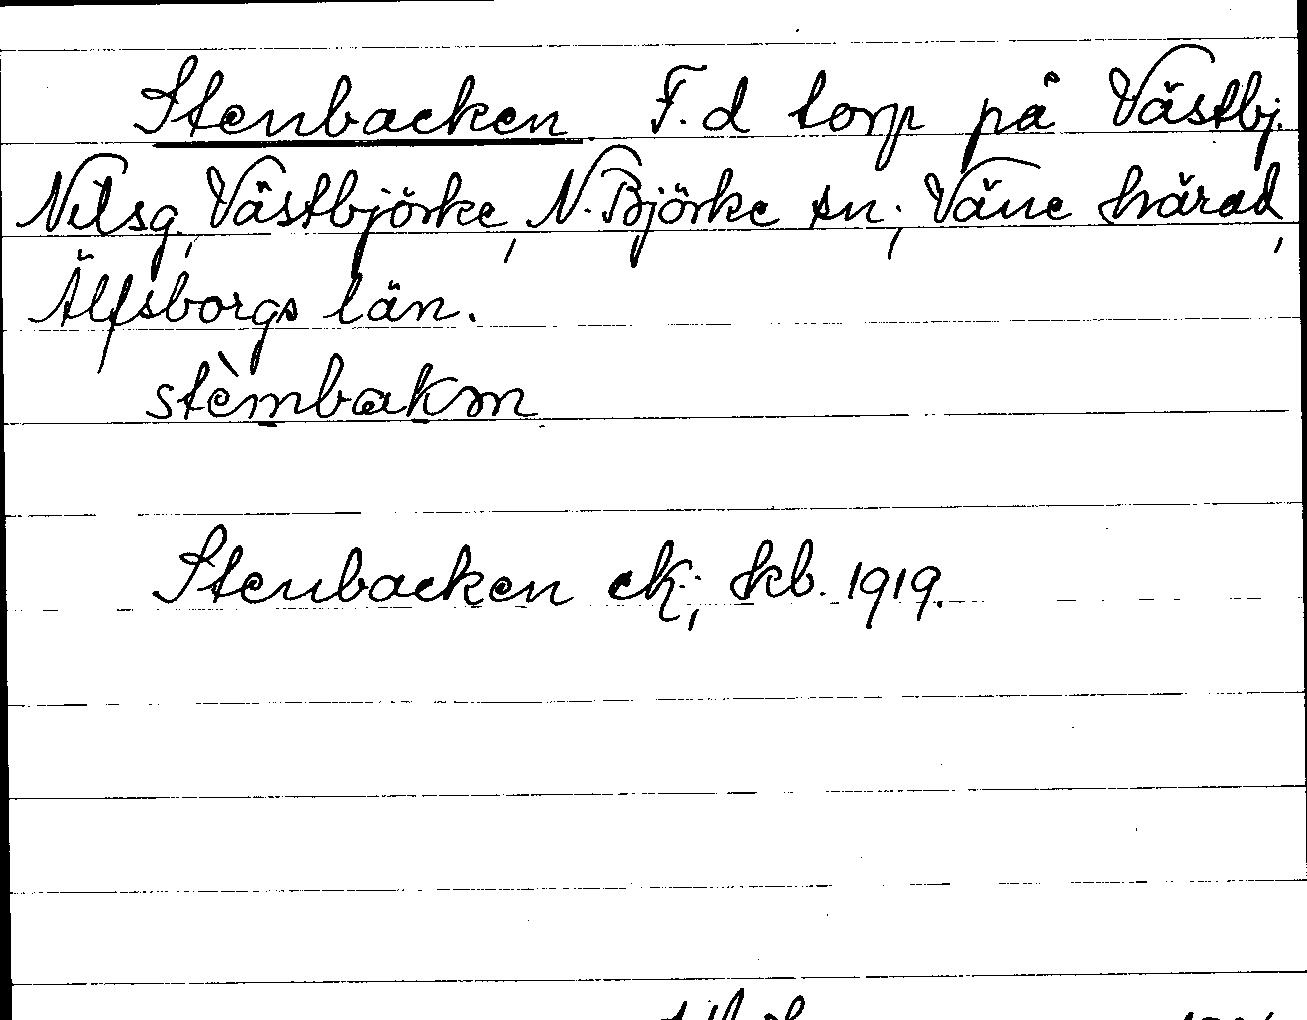 Stenbacken. F.d torp på Västbj.
Nilsg, Västbjörke, N. Björke sn; Väne härad,
Älfsborgs län.
stèmbakm
Stenbacken ek; kb. 1919.